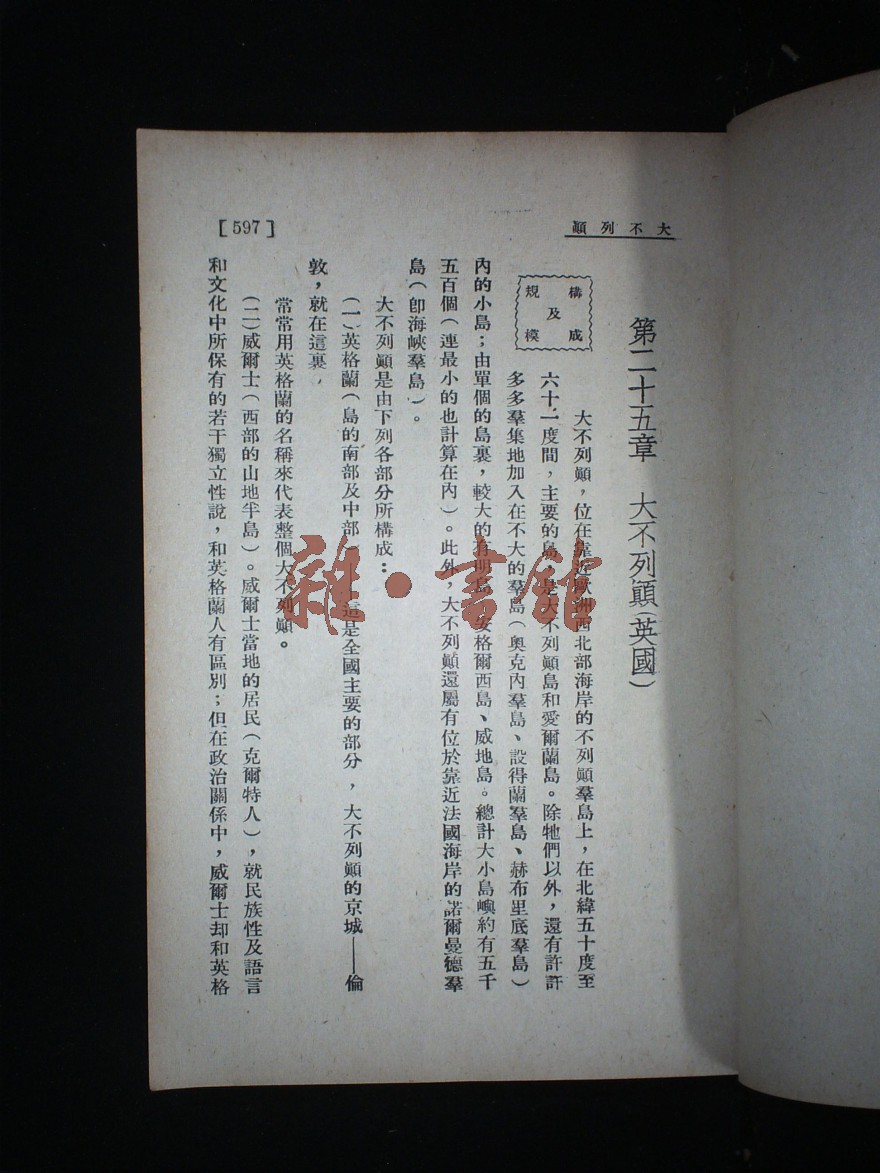 大不列顚
[597]
第二十五章　大不列顚（英國）
構成及規模
大不列顚，位在靠近歐洲西北部海岸的不列顚羣島上，在北緯五十度至
六十一度間，主要的島，是大不列顚島和愛爾蘭島。除牠們以外，還有許許
多多羣集地加入在不大的羣島（奧克內羣島、設得蘭羣島、赫布里底羣島）
內的小島；由單個的島裏，較大的有明島、安格爾西島、威地島。總計大小島嶼約有五千
五百個（連最小的也計算在內）。此外，大不列顚還屬有位於靠近法國海岸的諾爾曼德羣
島（卽海峽羣島）。
大不列顚是由下列各部分所構成：
（一）英格蘭（島的南部及中部 這是全國主要的部分，大不列顚的京城——倫
敦，就在這裏，
常常用英格蘭的名稱來代表整個大不列顚。
（二）威爾士（西部的山地半島）。威爾士當地的居民（克爾特人），就民族性及語言
和文化中所保有的若干獨立性說，和英格蘭人有區別；但在政治關係中，威爾士却和英格
雜·書舘